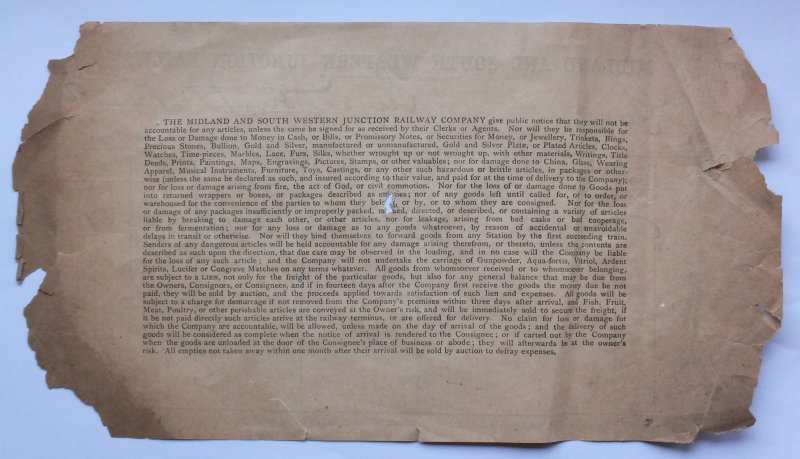 THE MIDLAND AND SOUTH WESTERN JUNCTION RAILWAY COMPANY give public notice that they will not be
accountable for any articles, unless the same be signed for as received by their Clerks or Agents. Nor will they be responsible for
the Loss or Damage done to Money in Cash, or Bills, or Promissory Notes, or Securities for Money, or Jewellery, Trinkets, Rings,
Precious Stones, Bullion, Gold and Silver, manufactured or unmanufactured, Gold and Silver Plate, or Plated Articles, Clocks,
Watches, Time-pieces, Marbles, Lace, Furs, Silks, whether wrought up or not wrought up, with other materials, Writings, Title
Deeds, Prints, Paintings, Maps, Engravings, Pictures, Stamps, or other valuables; nor for damage done to China, Glass, Wearing
Apparel, Musical Instruments, Furniture, Toys, Castings, or any other such hazardous or brittle articles, in packages or other-
wise (unless the same be declared as such, and insured according to their value, and paid for at the time of delivery to the Company);
nor for loss or damage arising from fire, the act of God, or civil commotion. Nor for the loss of or damage done to Goods put
into returned wrappers or boxes, or packages described as empties; nor of any goods left until called for, or to order, or
warehoused for the convenience of the parties to whom they belong, or by, or to whom they are consigned. Nor for the loss
or damage of any packages insufficiently or improperly packed, marked, directed, or described, or containing a variety of articles
liable by breaking to damage each other, or other articles. nor for leakage, arising from bad casks or bad cooperage,
or from fermentation; nor for any loss or damage as to any goods whatsoever, by reason of accidental or unavoidable
delays in transit or otherwise. Nor will they bind themselves to forward goods from any Station by the first succeeding train.
Senders of any dangerous articles will be held accountable for any damage arising therefrom, or thereto, unless the contents are
described as such upon the direction, that due care may be observed in the loading, and in no case will the Company be liable
for the loss of any such article; and the Company will not undertake the carriage of Gunpowder, Aqua-fortis, Vitriol, Ardent
Spirits, Lucifer or Congreve Matches on any terms whatever. All goods from whomsoever received or to whomsoever belonging,
are subject to a LIEN, not only for the freight of the particular goods, but also for any general balance that may be due from
the Owners, Consignors, or Consignees, and if in fourteen days after the Company first receive the goods the money due be not
paid, they will be sold by auction, and the proceeds applied towards satisfaction of such lien and expenses. All goods will be
subject to a charge for demurrage if not removed from the Company's premises within three days after arrival, and Fish, Fruit,
Meat, Poultry, or other perishable articles are conveyed at the Owner's risk, and will be immediately sold to secure the freight, if
it be not paid directly such articles arrive at the railway terminus, or are offered for delivery. No claim for loss or damage for
which the Company are accountable, will be allowed, unless made on the day of arrival of the goods; and the delivery of such
goods will be considered as complete when the notice of arrival is rendered to the Consignee; or if carted out by the Company
when the goods are unloaded at the door of the Consignee's place of business or abode; they will afterwards be at the owner's
risk. All empties not taken away within one month after their arrival will be sold by auction to defray expenses.